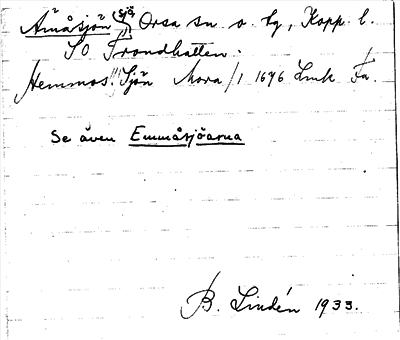 Åmåsjön (sjö) Orsa sn o. tg, Kopp. l.
SO Trondhallen.
Hemmos Sjön Mora /1 1696 Lmk Fa.
Se även Emmåsjöarna
B. Lindén 1933.